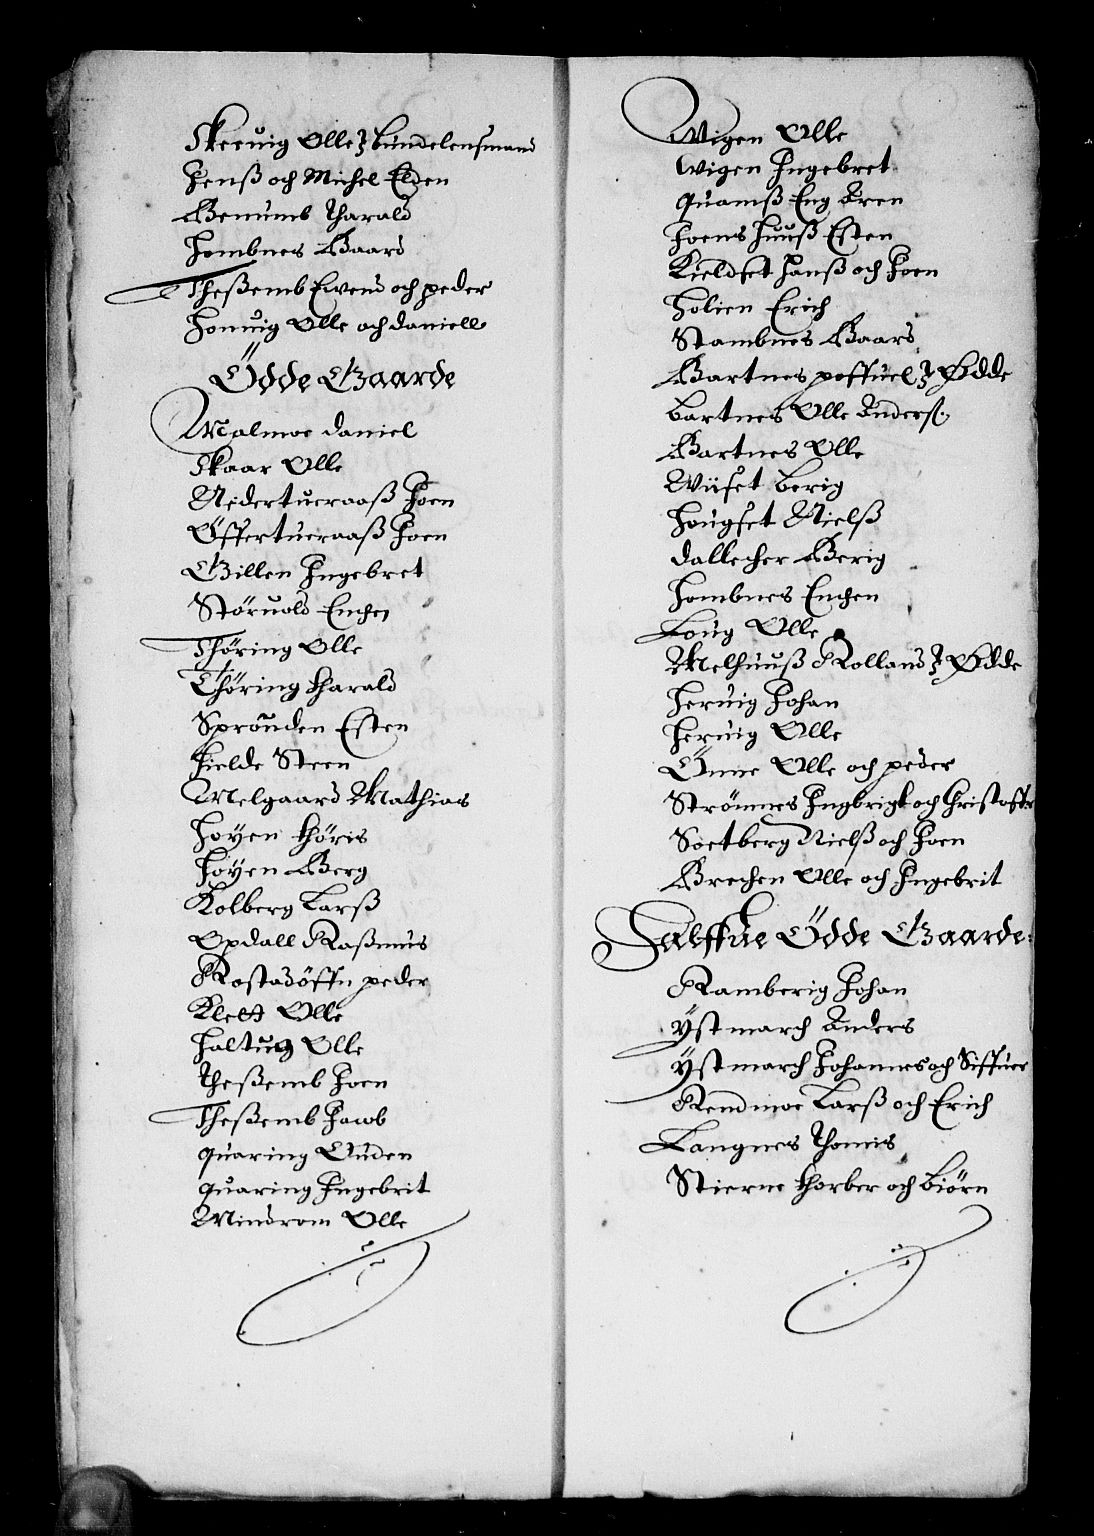 Skeruig Olle } bundelensmand
Jenß och Michel Elden
Benumb Tharald
Hombnes Baard
Theßemb Ewend och peder
Honuig Olle och daniell
Ödde Gaarde
Malmoe daniel
Skaar Olle
Nedertueraaß Joen
Öffertueraaß Joen
Gillen Ingebret
Støruold Enchen
Thöring Olle
Thöring tharald
Sprouden Esten
Fielde Steen
Melgaard Mathias
Høyen thöris
Høyen Berg
Kolberg Larß
Opdall Raßmus
Rostad peder
Klett Olle
Haltug Olle
Theßemb Joen
Theßemb Jacob
quaring Auden
quaring Ingebrit
Mindrom Olle
Wigen Olle
Wigen Ingebret
quamß Eng Aren
Joens Huuß Esten
Kieldset Hanß och Joen
Holien Erich
Stambnes Baard
Bartnes poffuel } Ødde
bartnes Olle Anderß
Bartnes Olle
Wiiset berig
Hougset Nielß
dallecher Berig
Hombnes Enchen
Loug Olle
Melhuuß Rolland } Ødde
Heruig Johan
Heruig Olle
Önne Olle och peder
Strömnes Ingbrigt och Christoffer
Soetberg Nielß och Joen
Brechen Olle och Ingebrit
Halffue Ödde Gaarde:
Ramberig Johan
Ÿstmarch Anders
Ÿstmarch Johannes och Siffuer
Rendmoe Larß och Erich
Langnes Thomis
Stierne thorber och biörn